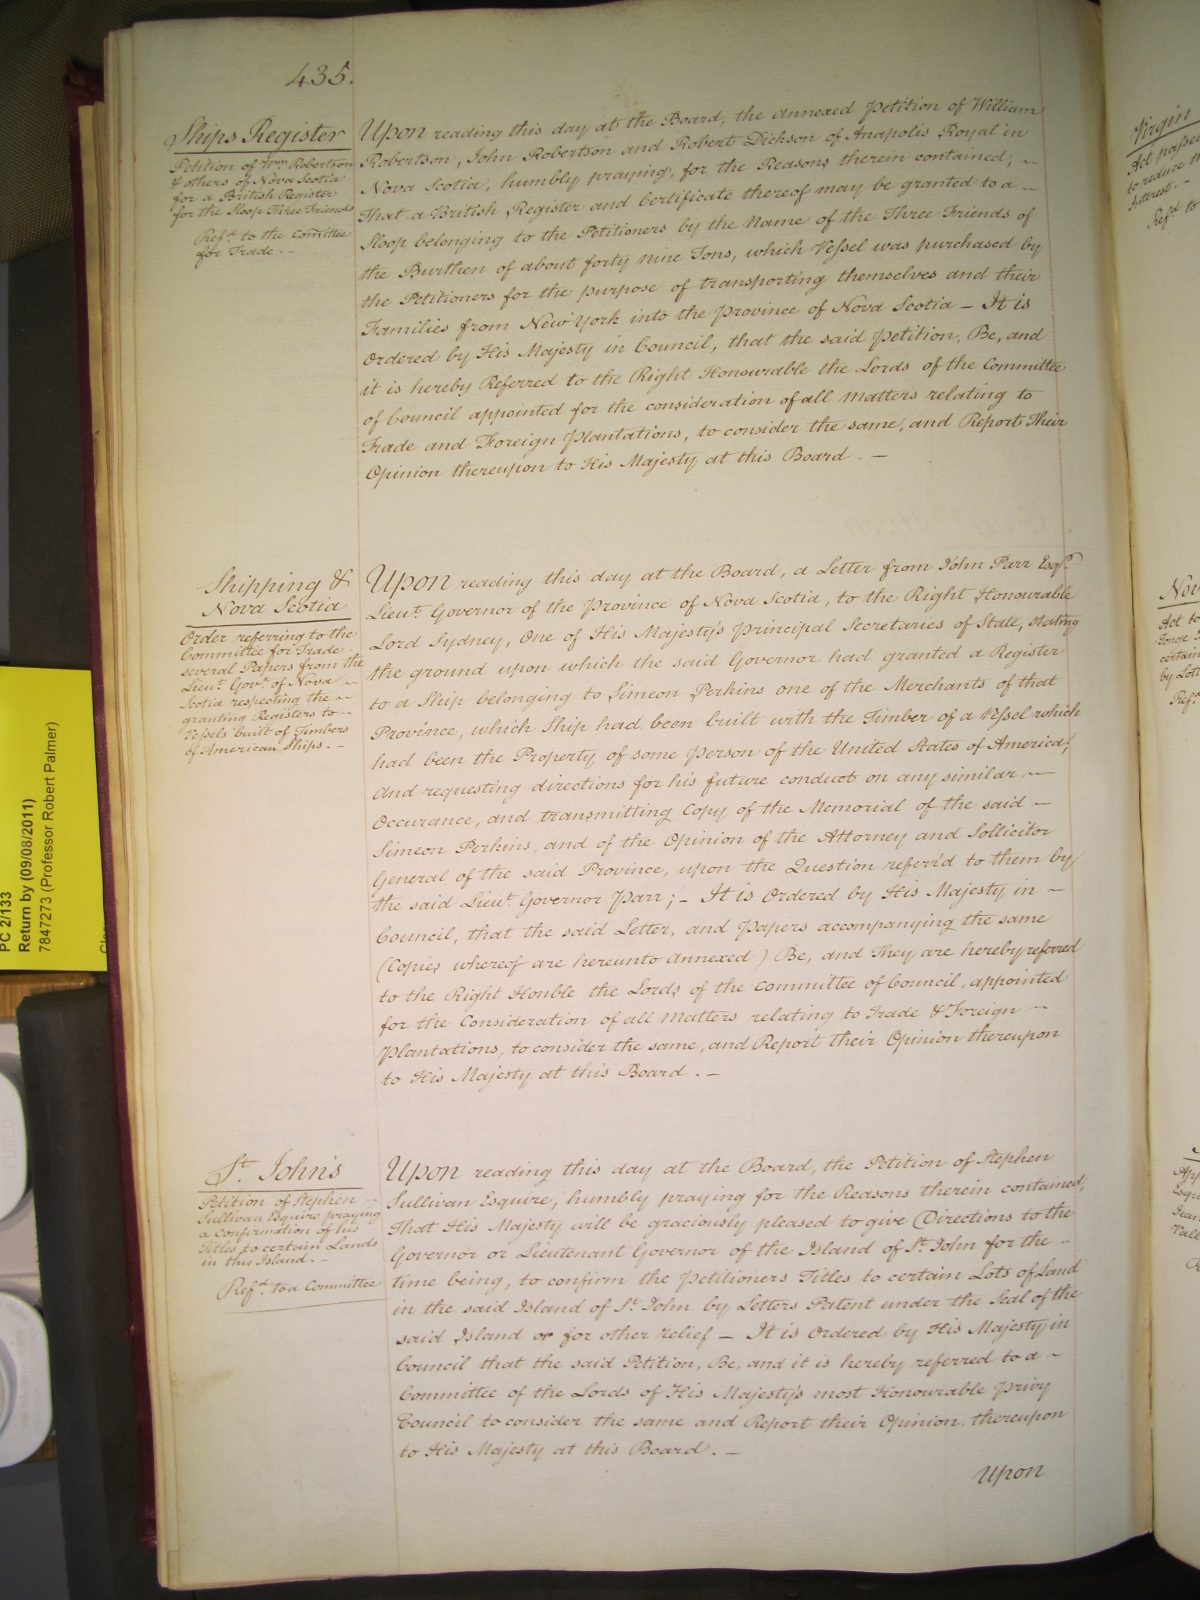 435.
Ships Register
Petition of Wm Robertson
& others of Nova Scotia
for a British Register
for the Sloop Three Friends
Refd. to the Comittee
for Trade. -
Upon reading this day at the Board, the annexed Petition of William
Robertson, John Robertson and Robert Dickson of Anapolis Royal in
Nova Scotia, humbly praying, for the Reasons therein contained, ~
That a British Register and Certificate thereof may be granted to a ~
Sloop belonging to the Petitioners by the Name of the Three Friends of
the Burthen of about forty nine Tons, which Vessel was purchased by
the Petitioners for the purpose of transporting themselves and their
Families from New York into the Province of Nova Scotia — It is
Ordered by His Majesty in Council, that the said Petition, Be, and
it is hereby Referred to the Right Honourable the Lords of the Committee
of Council appointed for the consideration of all Matters relating to
Trade and Foreign Plantations, to consider the same, and Report Their
Opinion thereupon to His Majesty at this Board. —
Shipping &
Nova Scotia
Order referring to the
Committee for Trade
several Papers from the
Lieut. Govr. of Nova ~
Scotia respecting the ~
granting Registers to ~
Vessels built of Timbers
of American Ships. -
Upon reading this day at the Board, a Letter from John Parr Esqr.
Lieut. Governor of the Province of Nova Scotia, to the Right Honourable
Lord Sydney, One of His Majesty's Principal Secretaries of State, stating
the ground upon which the said Governor had granted a Register
to a Ship belonging to Simeon Perkins one of the Merchants of that
Province, which Ship had been built with the Timber of a Vessel which
had been the Property of some Person of the United States of America;
And requesting directions for his future conduct on any similar ~
Occurance, and transmitting Copy of the Memorial of the said ~
Simeon Perkins, and of the Opinion of the Attorney and Sollicitor
General of the said Province, upon the Question referr'd to them by
the said Lieut. Governor Parr; - It is Ordered by His Majesty in ~
Council, that the said Letter, and Papers accompanying the same
(Copies whereof are hereunto annexed) Be, and They are hereby referred
to the Right Honble the Lords of the Committee of Council, appointed
for the Consideration of all Matters relating to Trade & Foreign ~
Plantations, to consider the same, and Report their Opinion thereupon
to His Majesty at this Board. —
St. John's
Petition of Stephen
Sullivan Esquire praying
a Confirmation of his
Titles to certain Lands
in this Island. -
Refd. to a Committee
Upon reading this day at the Board, the Petition of Stephen
Sullivan Esquire, humbly praying for the Reasons therein contained,
That His Majesty will be graciously pleased to give Directions to the
Governor or Lieutenant Governor of the Island of St. John for the -
time being, to confirm the Petitioners Titles to certain Lots of Land
in the said Island of St. John by Letters Patent under the Seal of the
said Island or for other relief — It is Ordered by His Majesty in
Council that the said Petition, Be, and it is hereby referred to a ~
Committee of the Lords of His Majesty's most Honourable Privy
Council to consider the same and Report their Opinion thereupon
to His Majesty at this Board. —
Upon
PC 2/133
Return by (09/08/2011)
7847273 (Professor Robert Palmer)
Virgin
Act passed
to reduce
Interest. -
Refd. to
Act to
certain
by Lott
Refd.